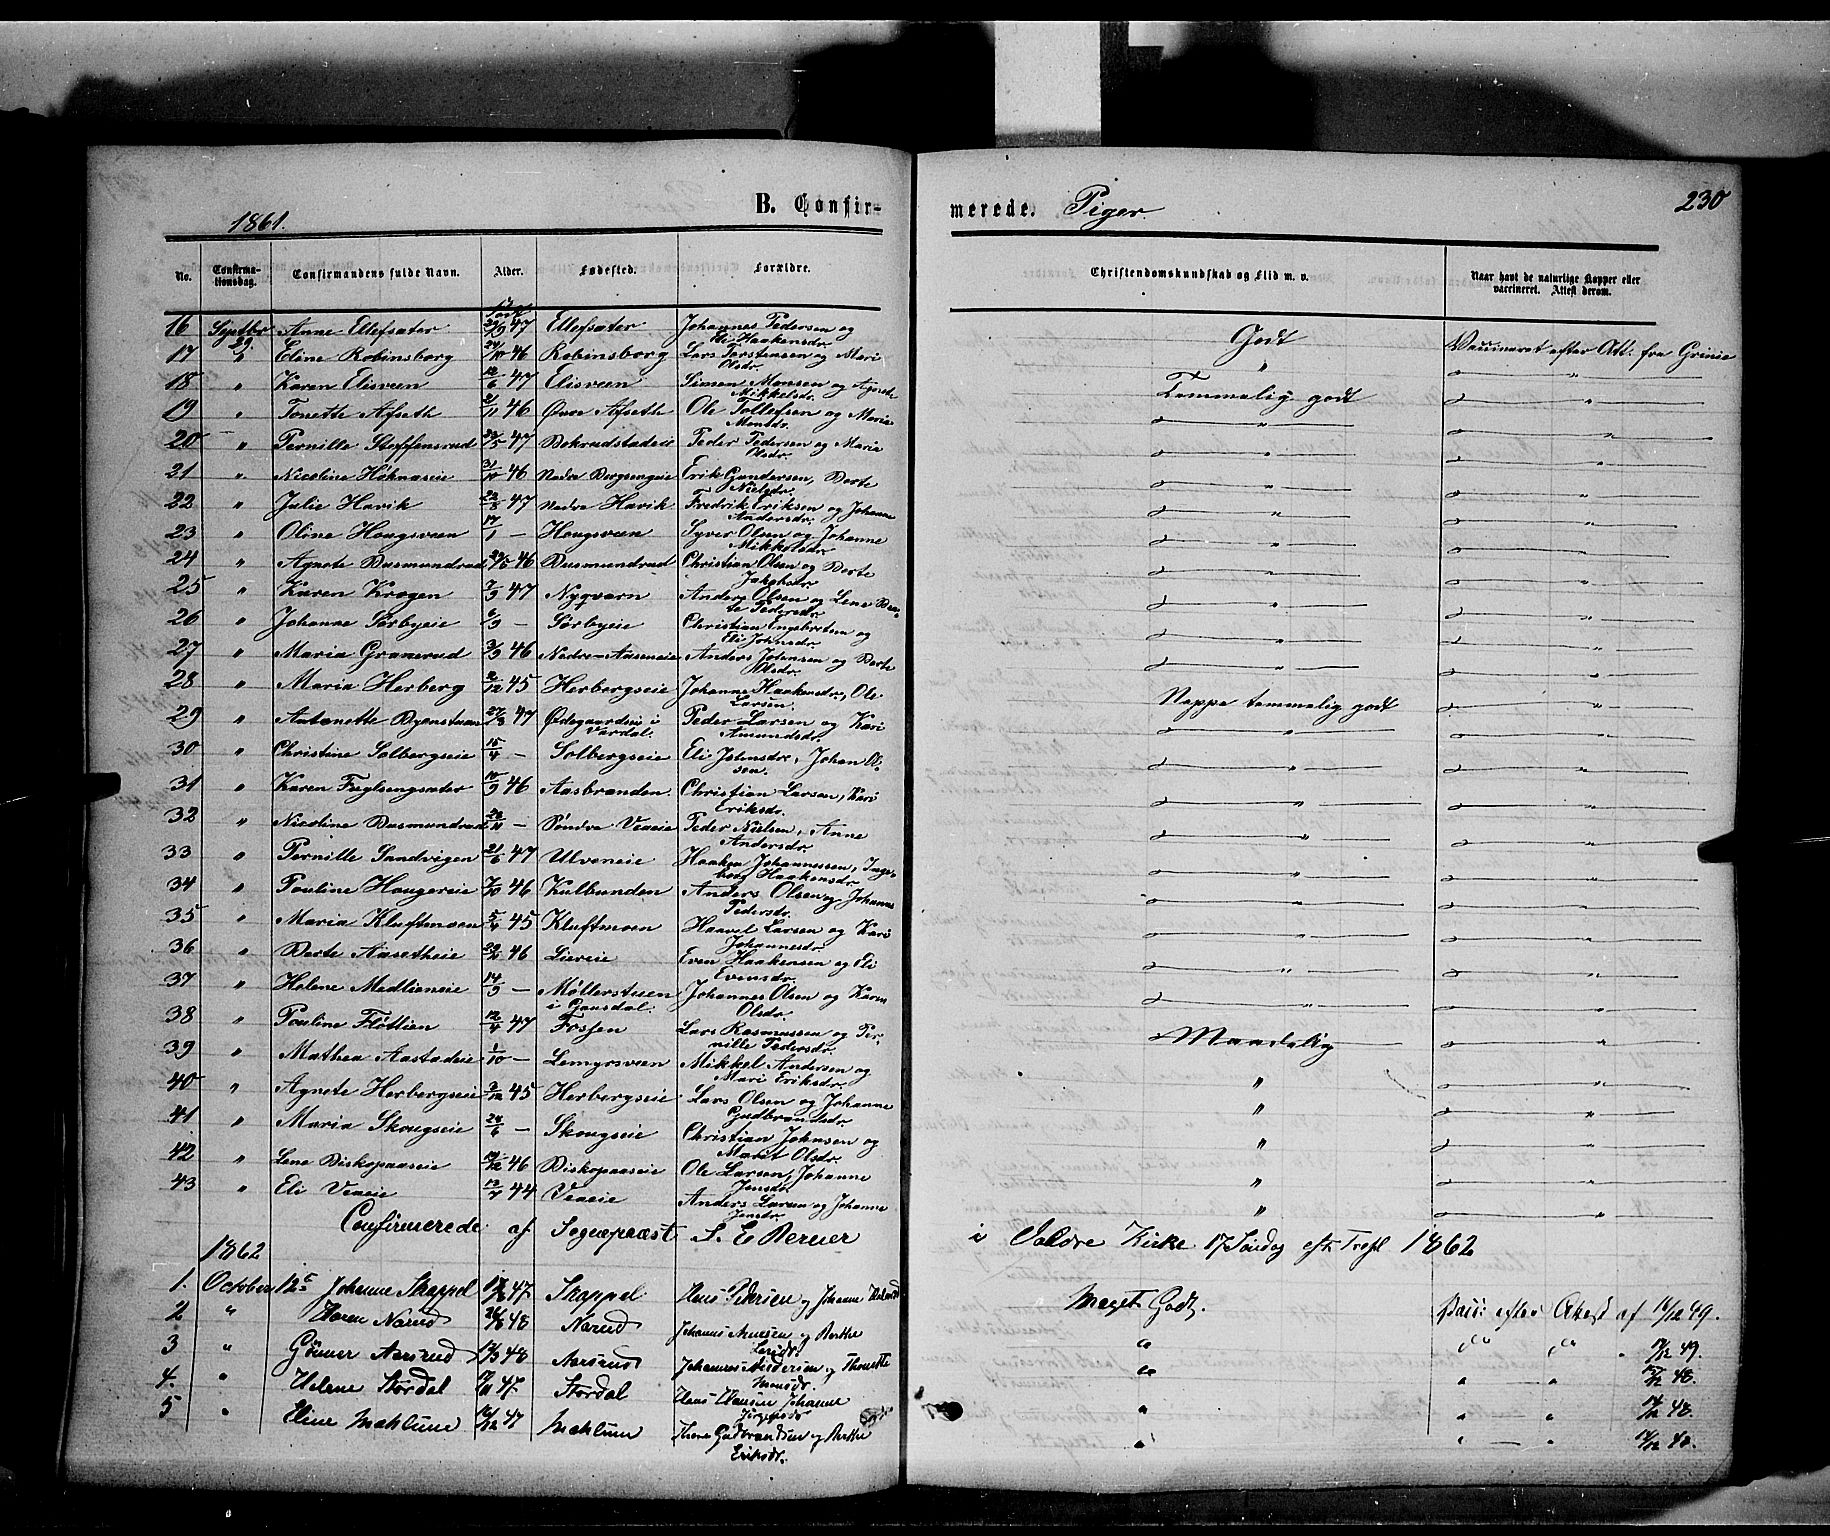 1861.
B. Confir-
merede. Piger.
230
No.
Confirma-
tionsdag.
Confirmandens fulde Navn.
Alder.
Fødested.
Forældre.
Christendomskundskab og Flid m. v.
Naar havt de naturlige Kopper eller
vaccineret. Attest derom.
16 Septbr 29. Anne Ellefsæter 29/9 47 Ellefsæter Johannes Pedersen og Eli Haakensdr. Godt Vaccineret efter Att. fra Grinie
17 " Eline Robinsborg 46 Robinsborg Lars Torstensen og Mari Olsdr. " "
18 " Karen Elisveen 12/6 47 Elisveen Simen Monsen og Agnethe Mikkelsdr. Temmelig godt "
19 " Tonette Afseth 2/11 46 Øvre Afseth Ole Tollefsen og Maria " "
20 " Pernille Steffensrud 47 Bokrudstadeie Peder Pedersen og Maria Olsdr. " "
21 " Nicoline Høknaseie 46 Nedre Bergsengeie Erik Gundersen, Berte Nielsdr. " "
22 " Julie Havik 47 Nedre Havik Fredrik Eriksen og Johanne Andersdr. " "
23 " Oline Hougsveen 17/1 — Hougsveen Syver Olsen og Johanne Mikkelsdr. " "
24 " Agnete Dusmundrud 46 Dusmundrud Christian Olsen og Berte Jakobsdr. " "
25 " Karen Krogen 7/9 47 Nyqværn Anders Olsen og Lene Bea- te Pedersdr. " "
26 " Johanne Sørbyeie 6/9 — Sørbyeie Christian Engebretsen og Eli Johnsdr. " "
27 " Maria Granerud 3/9 46 Nedre-Aaseneie Anders Johnsen og Berte Olsdr. " "
28 " Maria Herberg 2/12 45 Herbergseie Johanne Haakensdr., Ole Larsen. Neppe temmelig godt "
29 " Antonette Byenstuen 27/8 47 Ødegaardeie i Vardal. Peder Larsen og Kari Amundsdr. " "
30 " Christine Solbergseie 15/4 — Solbergseie Eli Johnsdr., Johan Ol- sen. " "
31 " Karen Fuglsengsæter 46 Aasbranden Christian Larsen, Kari Eriksdr. " "
32 " Nicoline Dusmundrud — Søndre Veneie Peder Nielsen, Anne Andersdr. " "
33 " Pernille Sandvigen 21/6 47 Ulveneie Haaken Johannessen, Inge- borg Haakensdr. " "
34 " Pouline Haugereie 7/10 46 Kulbunden Anders Olsen og Johanne Pedersdr. " "
35 " Maria Kluftmoen 5/4 45 Kluftmoen Haavel Larsen og Kari Johannesdr. " "
36 " Berte Aasetheie 46 Lieeie Even Haakensen og Eli Evensdr. " "
37 " Helene Medlieneie 14/9 — Møllerstuen i Gausdal. Johannes Olsen og Karen Olsdr. " "
38 " Pouline Fløtlien 12/4 47 Fossen Lars Rasmussen og Per- nille Pedersdr. Maadelig "
39 " Mathea Aastadeie 1/10 — Lemyrsveen Mikkel Andersen og Mari Eriksdr. " "
40 " Agnete Herbergseie 2/12 45 Herbergseie Lars Olsen og Johanne Gudbrandsdr. " "
41 " Maria Skougseie 24/6 — Skougseie Christian Johnsen og Maret Olsdr. " "
42 " Lene Biskopaaseie 46 Biskopaaseie Ole Larsen, Johanne Jensdr. " "
43 " Eli Veaeie 44 Veaeie Anders Larsen og Johanne Jensdr. " "
Confirmerede af Sognepræst S. E. Berner i Kirke 17 Søndag eft. Tref. 1862
1862
1. October 12te Johanne Skappel 47 Skappel Hans Pedersen og Johanne Meget Godt. Vacc: efter Attest af 49.
2 " Karen Narud 48 Narud Johannes og Berthe Larsdr. " " " 49.
3 " Aarsrud 48 Aarsrud Johannes Andersen og Thonette " " 48.
4. " Helene Stordal 47. Stordal Hans Hansen Johanne " " " 48.
5 " Eline Mæhlum 47 Mæhlum Gudbrandsen og Berthe Eriksdr. " " " 48.